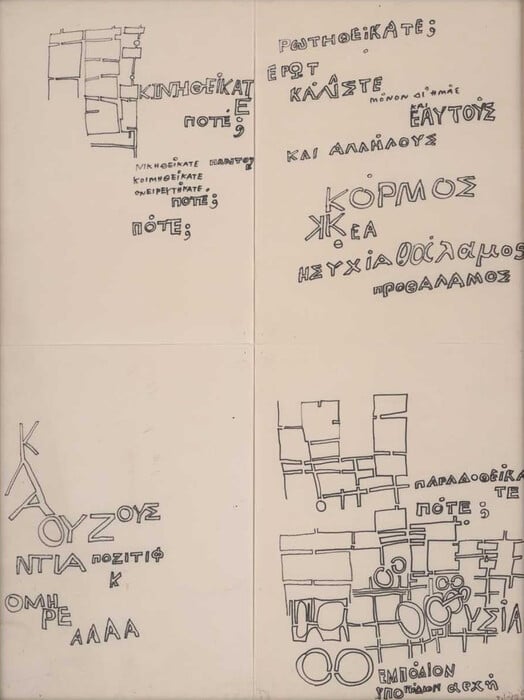 ΚΙΝΗΘΕΙΚΑΤ
Ε
ΠΟΤΕ;
ΝΙΚΗΘΕΙΚΑΤΕ
ΚΟΙΜΗΘΕΙΚΑΤΕ
ΟΝΕΙΡΕΥΤΗΚΑΤΕ.
ΠΟΤΕ;
ΠΌΤΕ;
ΡΩΤΗΘΕΊΚΑΤΕ;
ΕΡΩΤ
ΚΑΛΙΣΤΕ
ΜΌΝΟΝ ΔΙ ΗΜΆΣ
ΚΑΙ
ΕΑΥΤΟΎΣ
ΚΑΙ ΑΛΛΗΛΟΥΣ
ΚΌΡΜΟΣ
ΕΑ
ΗΣΥΧΙΑ θάλαμος
ΠΡΟΘΑΛΑΜΟΣ
Κ
Λ
Α
ΟΥΖΟΥΣ
ΝΤΙΑ ΠΟΖΙΤΙΦ
Κ
ΟΜΗ
ΡΕ
ΑΛΑΛ
ΠΑΡΑΔΟΘΕΙΚΑ
ΤΕ
ΠΌΤΕ;
ΥΣΙΑ
ΕΜΠΌΔΙΟΝ
ΥΠΟΠΌΔΙΟΝ αρχή